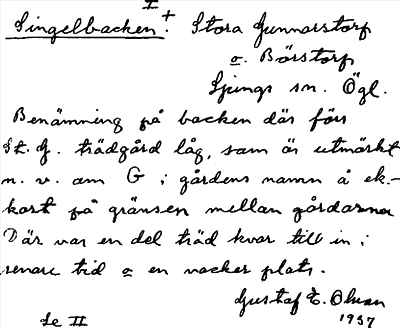 I
Singelbacken +. Stora Gunnarstorp
o. Börstorp
Ljungs sn. Ögl.
Benämning på backen där förr
St. G. trädgård låg, som är utmärkt
n. v. om G i gårdens namn å ek.-
kart på gränsen mellan gårdarna
Där var en del träd kvar till in i
senare tid o en vacker plats.
Gustaf E. Olsson
1937
Se II